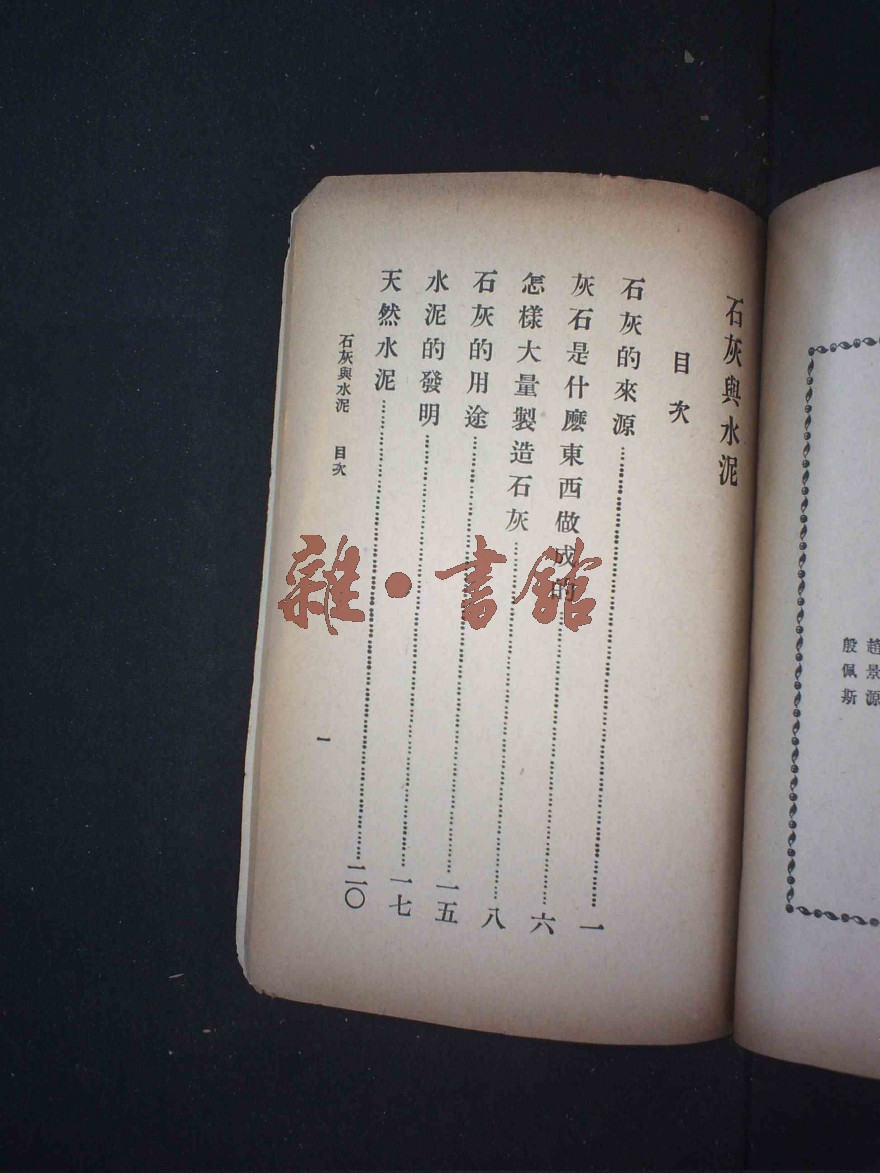 趙景源
殷佩斯
石灰與水泥
目次
石灰的來源一
灰石是什麽東西做成的六
怎樣大量製造石灰八
石灰的用途一五
水泥的發明一七
天然水泥二〇
石灰與水泥 目次
一
雜·書館